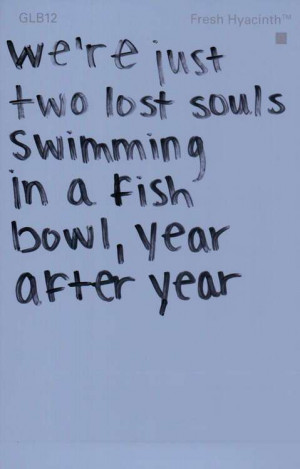 GLB12 Fresh Hyacinth™
we're just
two lost souls
Swimming
in a fish
bowl, year
after year